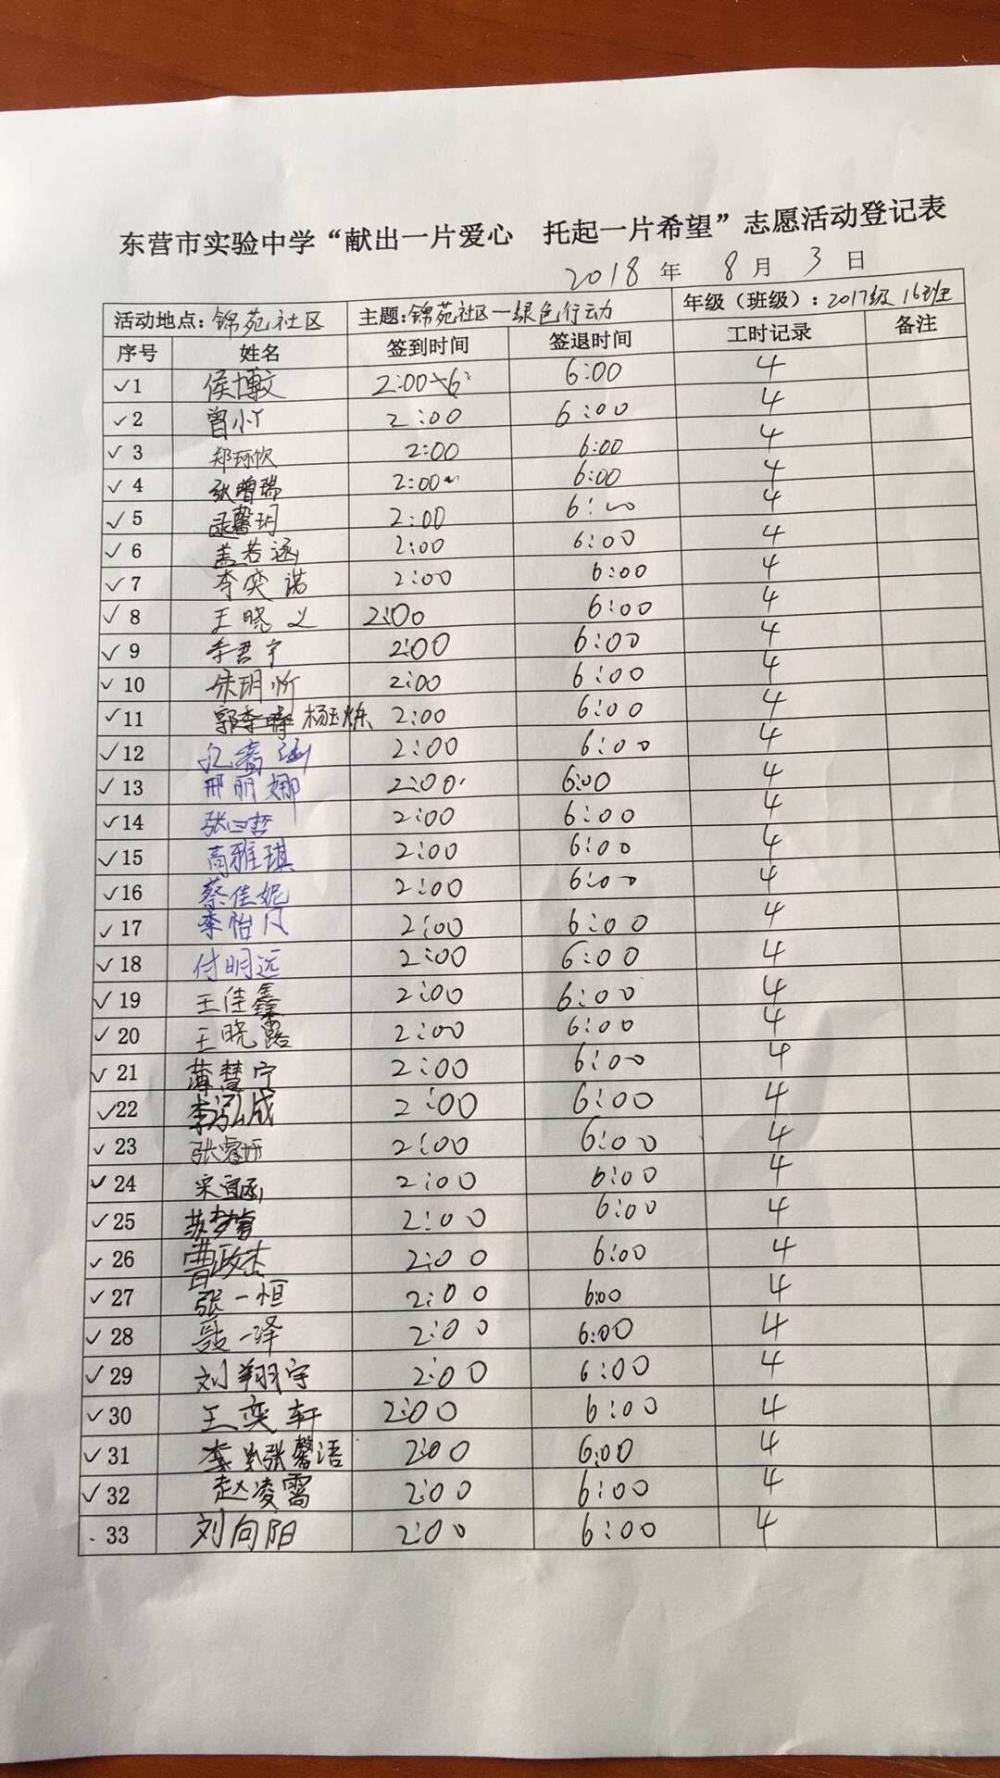 东营市实验中学“献出一片爱心 托起一片希望”志愿活动登记表
2018 年 8 月 3 日
活动地点: 锦苑社区 主题: 锦苑社区—绿色行动 年级（班级）: 2017级 16班
序号 姓名 签到时间 签退时间 工时记录 备注
✓1 侯博文 2:00 6:00 4
✓2 曾小丫 2:00 6:00 4
✓3 2:00 6:00 4
✓4 张曾瑞 2:00 6:00 4
✓5 馨玥 2:00 6:00 4
✓6 盖若涵 2:00 6:00 4
✓7 李奕诺 2:00 6:00 4
✓8 王晓义 2:00 6:00 4
✓9 李君宇 2:00 6:00 4
✓10 朱玥忻 2:00 6:00 4
✓11 杨玉烁 2:00 6:00 4
✓12 2:00 6:00 4
✓13 邢丽娜 2:00 6:00 4
✓14 张 哲 2:00 6:00 4
✓15 高雅琪 2:00 6:00 4
✓16 蔡佳妮 2:00 6:00 4
✓17 李怡凡 2:00 6:00 4
✓18 付明远 2:00 6:00 4
✓19 王佳鑫 2:00 6:00 4
✓20 王晓露 2:00 6:00 4
✓21 薄慧宁 2:00 6:00 4
✓22 李泓成 2:00 6:00 4
✓23 张睿妍 2:00 6:00 4
✓24 宋宜涵 2:00 6:00 4
✓25 苏梦 2:00 6:00 4
✓26 曹政杰 2:00 6:00 4
✓27 张一恒 2:00 6:00 4
✓28 聂一泽 2:00 6:00 4
✓29 刘翔宇 2:00 6:00 4
✓30 王奕轩 2:00 6:00 4
✓31 张馨语 2:00 6:00 4
✓32 赵凌霄 2:00 6:00 4
33 刘向阳 2:00 6:00 4